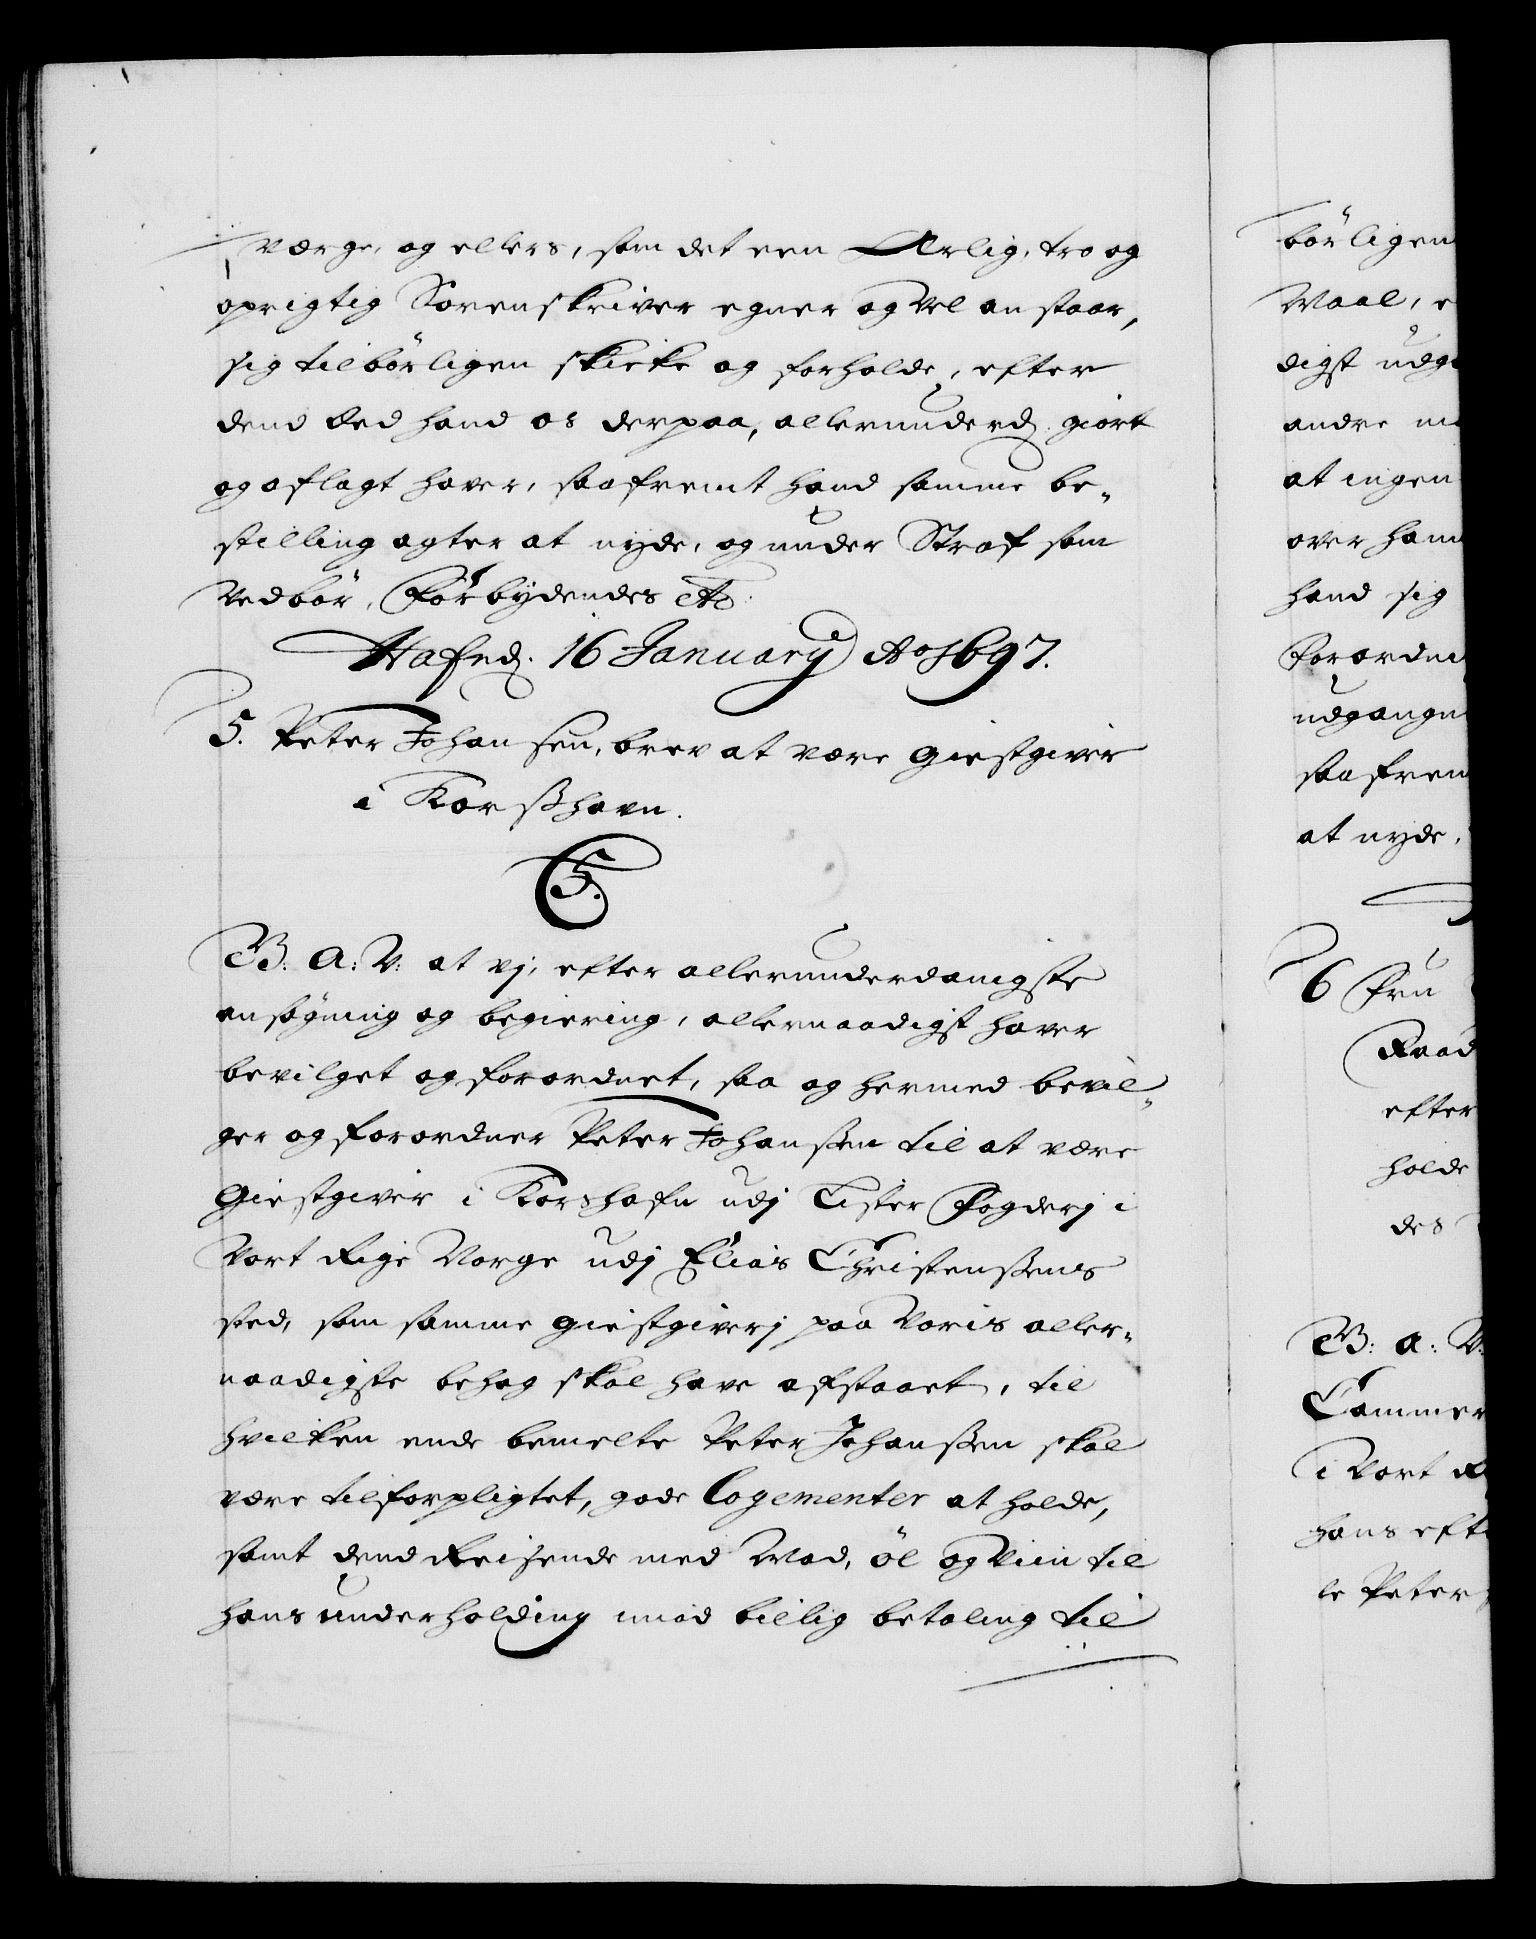 værge, og ellers, som det een Ærlig, tro og
oprigtig Sorenskriver egner og vel anstaar,
sig tilbörligen skicke og forholde, efter
dend Eed hand os derpaa, allerunderd. giört
og aflagt haver, saafremt hand samme be-
stilling agter at nyde, og under Straf som
vedbör, Forbydendes etc.
Hafnd. 16 Januarij Ao 1697.
5. Peter Johansen, brev at være Giestgiver
i Korsshavn.
5.
G. A. V. at vj, efter allerunderdanigste
ansögning og begiering, allernaadigst haver
bevilget og forordnet, saa og hermed bevil-
ger og forordner Peter Johanssen til at være
Giestgiver i Korshafn udj Lister Fogderj i
Vort Rige Norge udj Elias Christenssens
sted, som samme giestgiverj paa Voris aller-
naadigste behag skal have afstaaet, til
hvilken ende bemelte Peter Johanssen skal
være tilforpligtet, gode Logementer at holde,
samt dend Reisende med Mad, öl og Viin til
hans underholding imod billig betaling til
börligen
Maal, e
digst udg
andre
at ingen
over ham
hand sig
Forordni
udgangn
saafrem
at nyde,
6 Fru
Raad
efter
holde
des
G. A. V.
Cammer
i Vort R
hans eft
le Peter